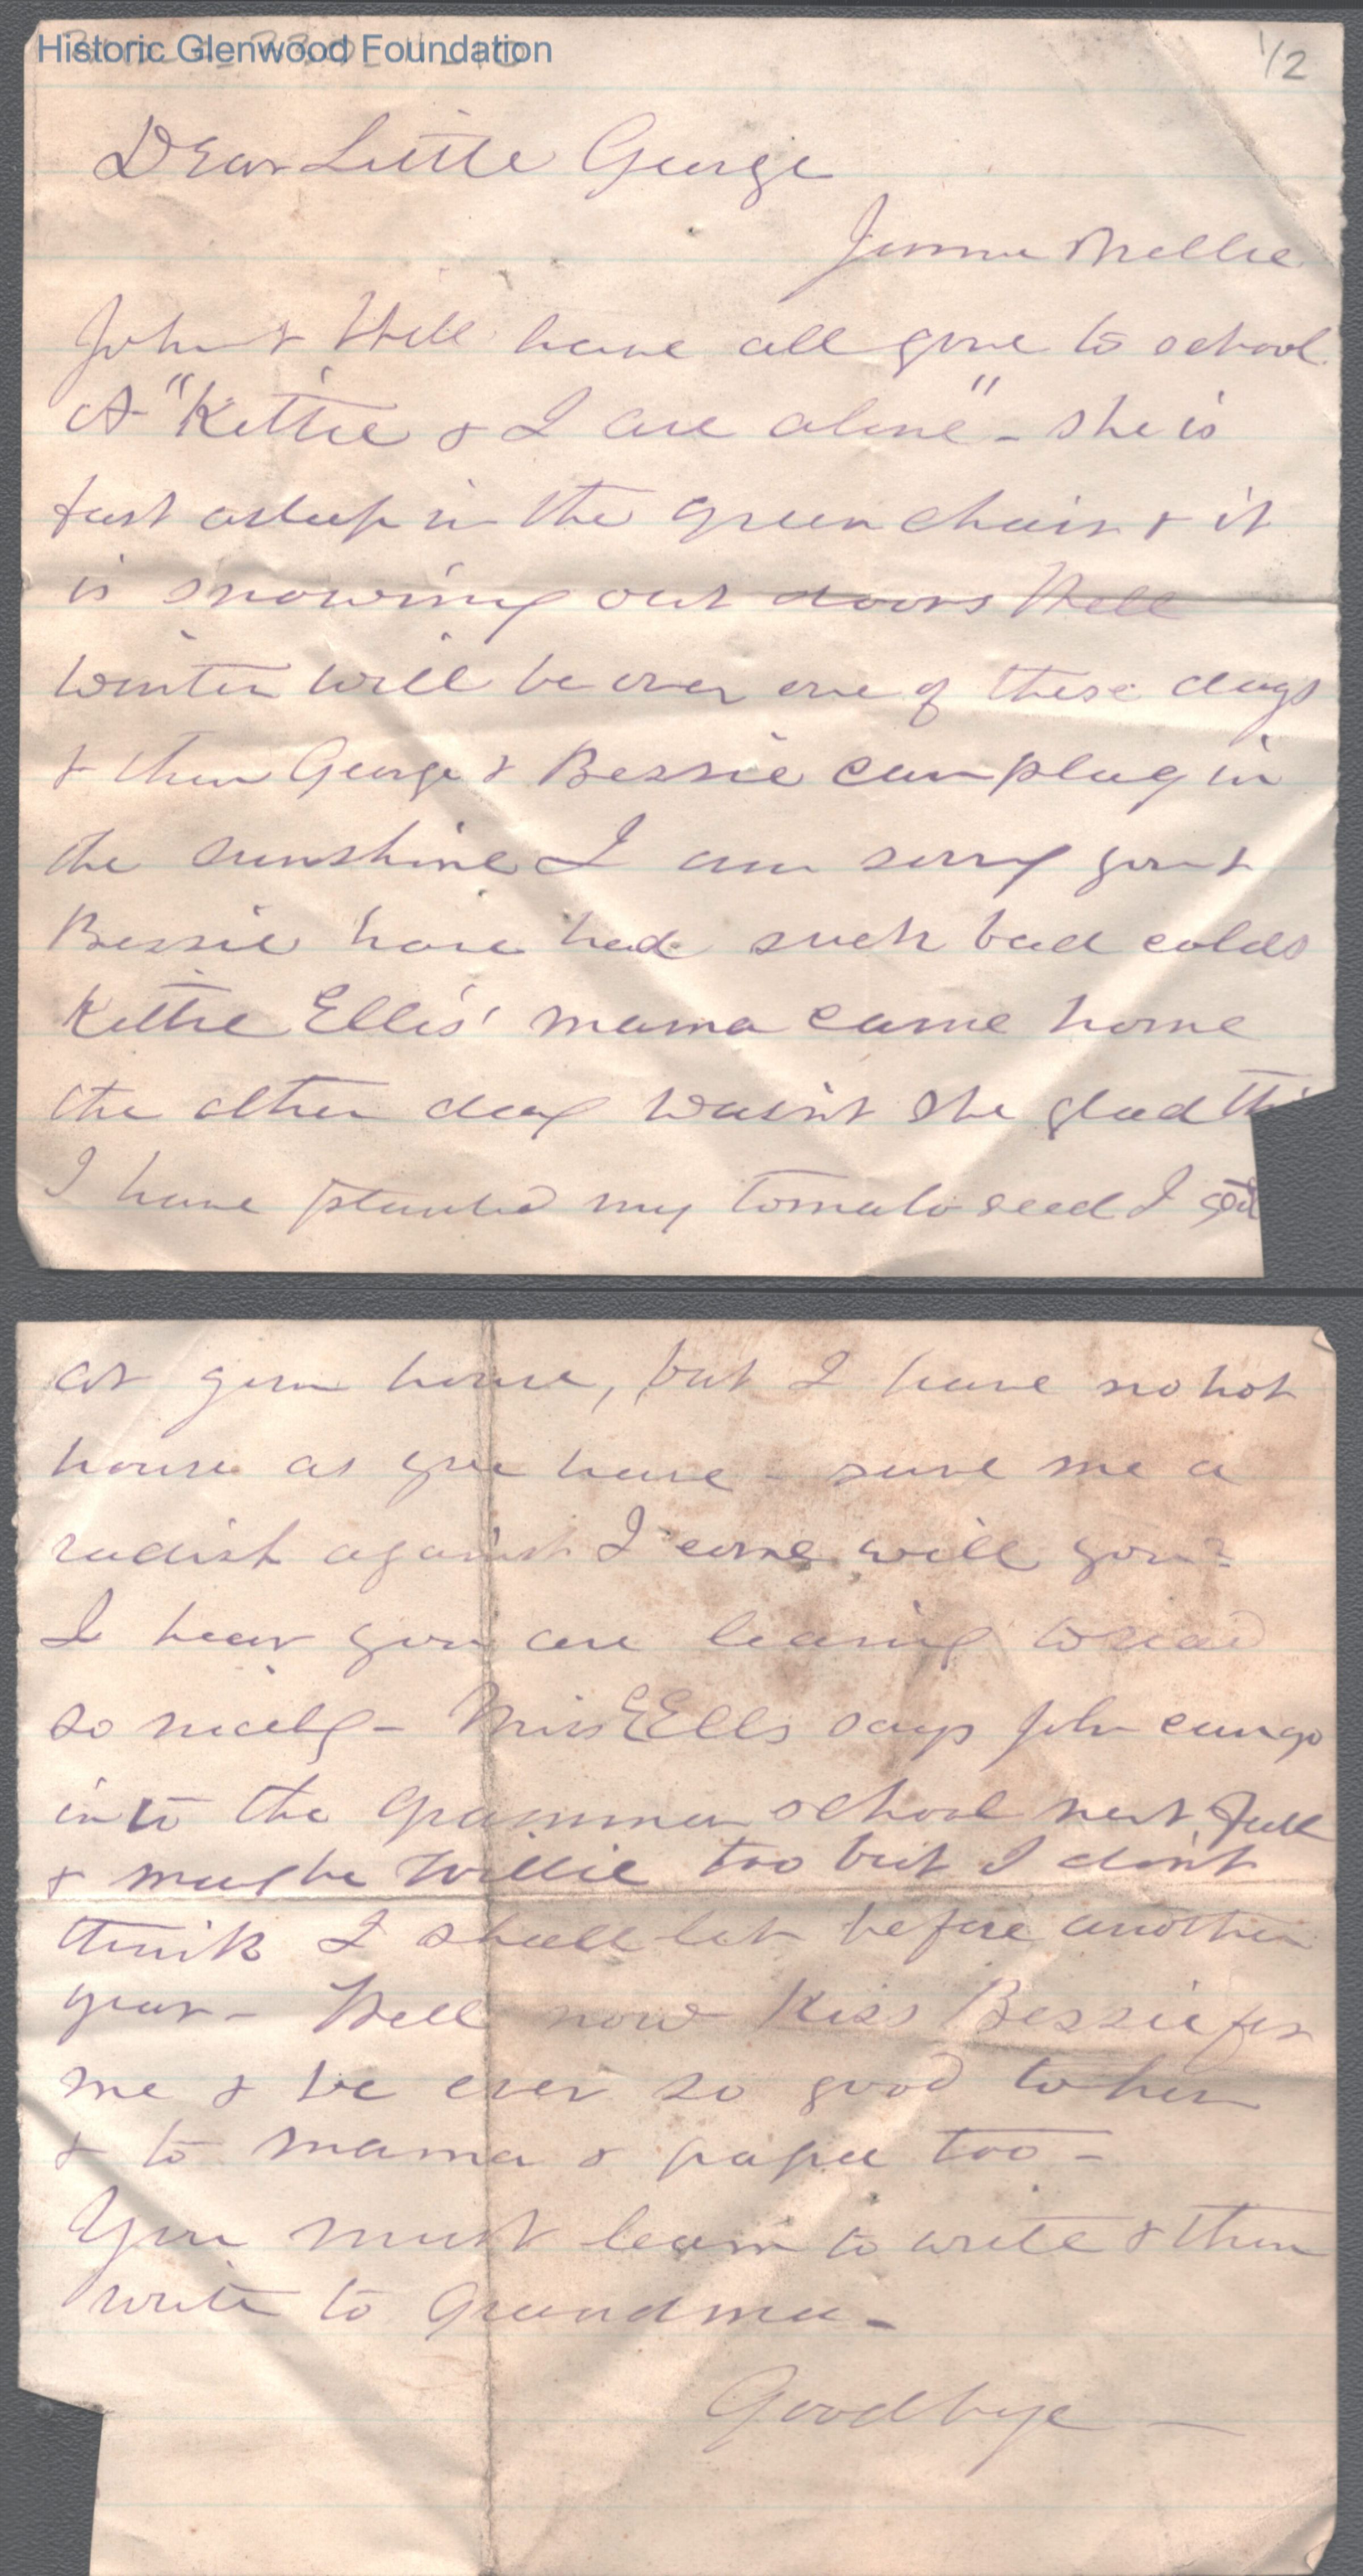 Historic Glenwood Foundation
1/2
Dear Little George
Jennie Nellie
John & Will have all gone to school
& "Kittie & I are alone" - she is
fast asleep in the green chair & it
is snowing out doors Well
winter will be over one of these days
& then George & Bessie can play in
the sunshine I am sorry you &
Bessie have had such bad colds
Kittie Ellis' mama came home
the other day wasn't she glad
I have planted my tomato seed I got
at your house, but I have no hot
house as you have - save me a
radish against I come will you?
I hear you are learing to read
so nicely - Miss Ells says John can go
into the Grammar school next fall
& maybe Willie too but I don't
think I shall let before another
year - Well now Kiss Bessie for
me & be ever so good to her
& to mama & papa too -
You must learn to write & then
write to Grandma -
Goodbye -